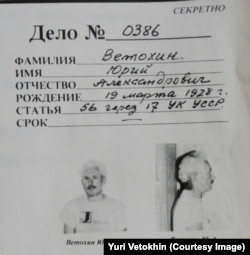 СЕКРЕТНО
Дело № 0386
ФАМИЛИЯ Ветохин.
ИМЯ Юрий
ОТЧЕСТВО Александрович
РОЖДЕНИЕ 19 марта 1928 г.
СТАТЬЯ 56 через 17 УК УССР
СРОК —
Ветохин Ю
Yuri Vetokhin (Courtesy Image)